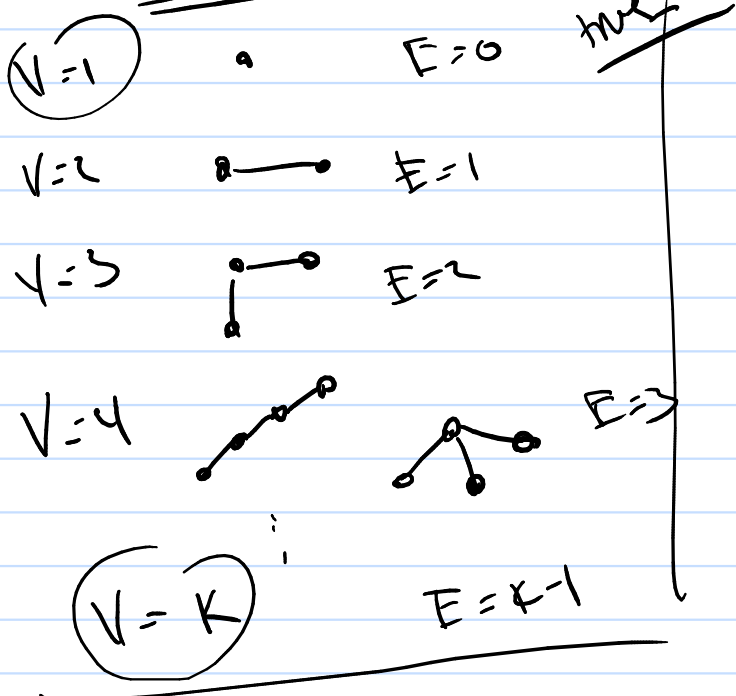 V=1 E=0
V=2 E=1
V=3 E=2
V=4 E=3
V=K E=K-1